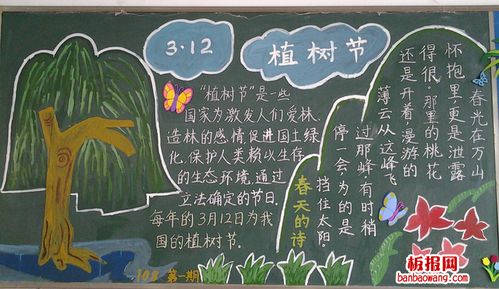 3·12
植树节
"植树节"是一些
国家为激发人们爱林、
造林的感情,促进国土绿
化,保护人类赖以生存
的生态环境,通过
立法确定的节日,
每年的3月12日为我
国的植树节。
春天的诗
春光在万山
怀抱里,更是泄露
得很。那里的桃花
还是开着,漫游的
薄云从这峰飞
过那峰,有时稍
停一会,为的是
挡住太阳,
108 第一期
板报网
banbaowang.com